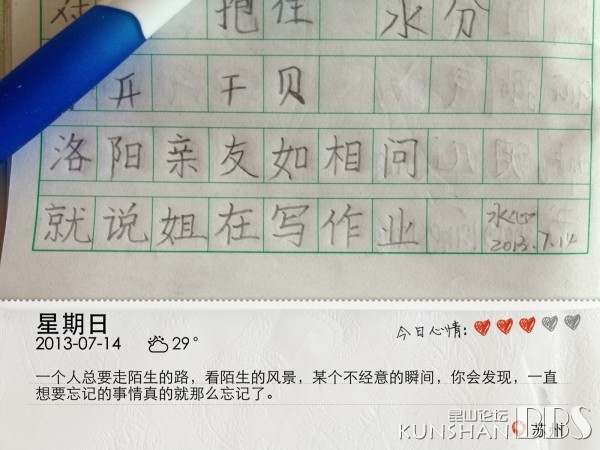 对 抱住 水分
开 干贝
洛阳亲友如相问
就说姐在写作业 水心
2013.7.14
星期日
2013-07-14 29°
今日心情:
一个人总要走陌生的路，看陌生的风景，某个不经意的瞬间，你会发现，一直
想要忘记的事情真的就那么忘记了。
昆山论坛
KUNSHAN BBS
苏州